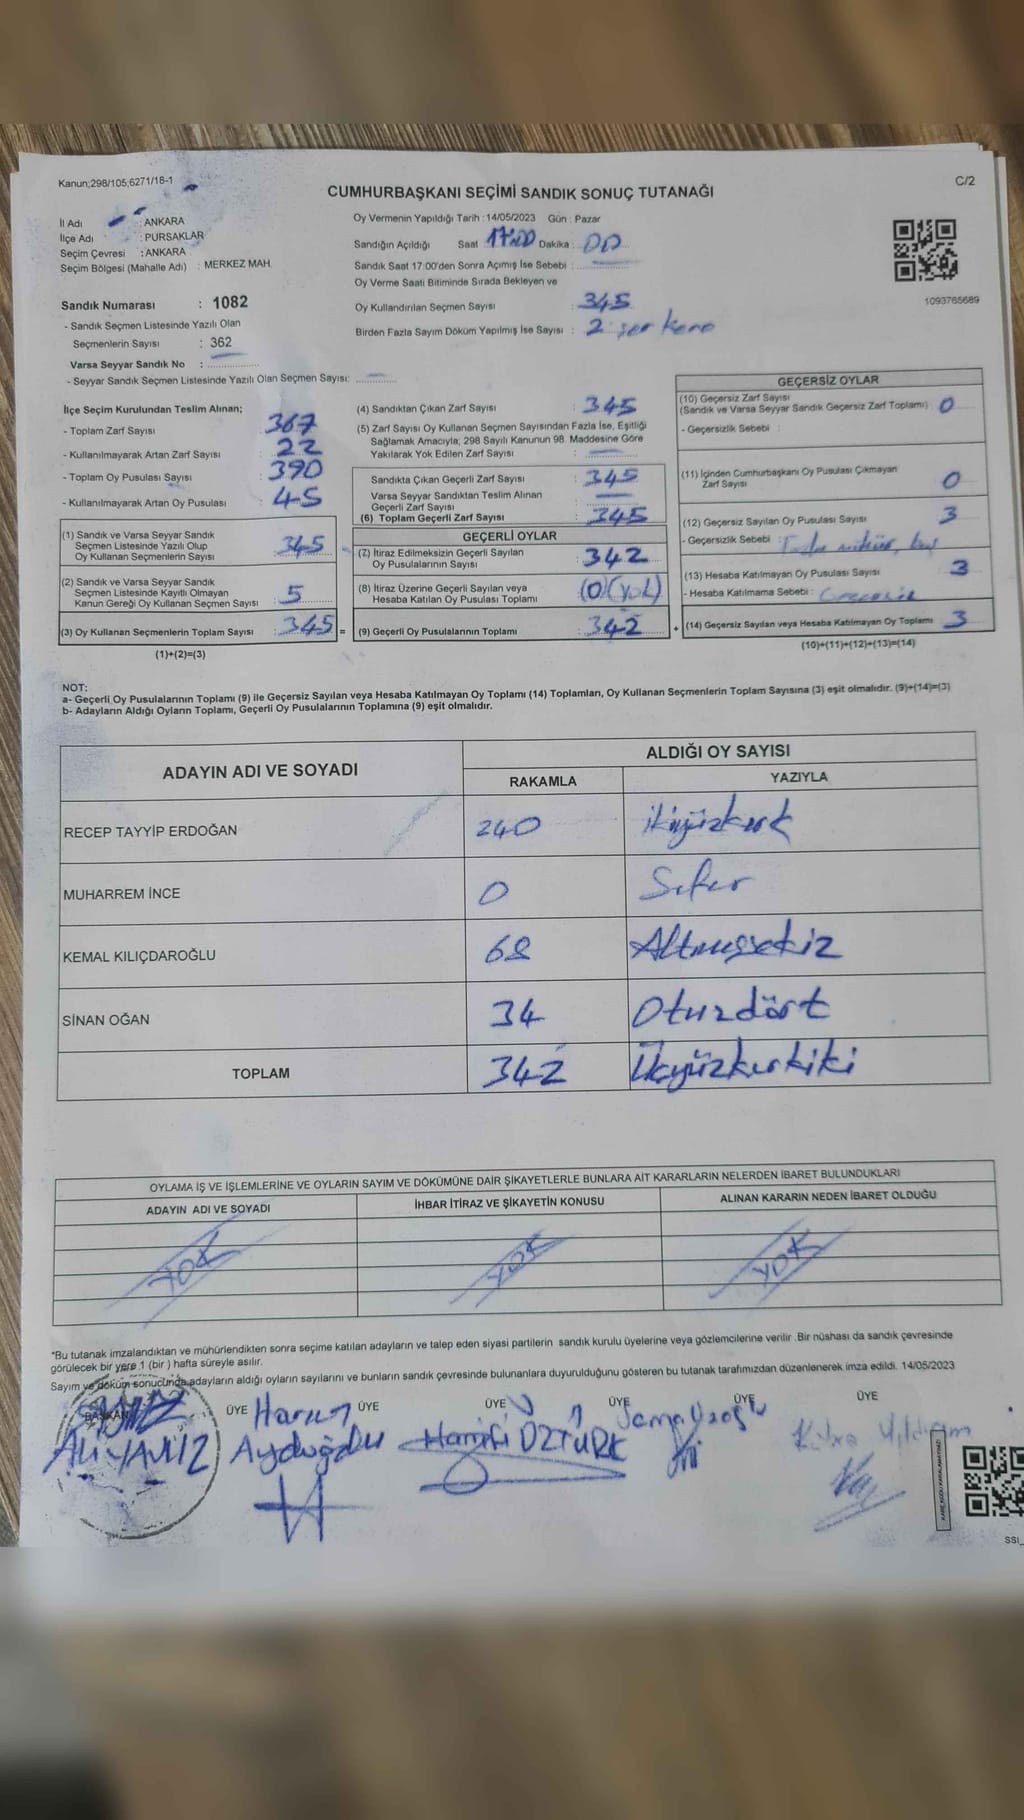 Kanun;298/105,6271/18-1
C/2
CUMHURBAŞKANI SEÇİMİ SANDIK SONUÇ TUTANAĞI
İl Adı : ANKARA
İlçe Adı : PURSAKLAR
Seçim Çevresi : ANKARA
Seçim Bölgesi (Mahalle Adı) : MERKEZ MAH.
Oy Vermenin Yapıldığı Tarih : 14/05/2023 Gün : Pazar
Sandığın Açıldığı Saat 17:00 Dakika : 00
Sandık Saat 17:00'den Sonra Açımış İse Sebebi :
Oy Verme Saati Bitiminde Sırada Bekleyen ve
Oy Kullandırılan Seçmen Sayısı : 345
Birden Fazla Sayım Döküm Yapılmış İse Sayısı : 2 şer kere
1093765689
Sandık Numarası : 1082
- Sandık Seçmen Listesinde Yazılı Olan
Seçmenlerin Sayısı : 362
Varsa Seyyar Sandık No :
- Seyyar Sandık Seçmen Listesinde Yazılı Olan Seçmen Sayısı:
İlçe Seçim Kurulundan Teslim Alınan;
- Toplam Zarf Sayısı : 367
- Kullanılmayarak Artan Zarf Sayısı : 22
- Toplam Oy Pusulası Sayısı : 390
- Kullanılmayarak Artan Oy Pusulası : 45
(1) Sandık ve Varsa Seyyar Sandık
Seçmen Listesinde Yazılı Olup
Oy Kullanan Seçmenlerin Sayısı : 345
(2) Sandık ve Varsa Seyyar Sandık
Seçmen Listesinde Kayıtlı Olmayan
Kanun Gereği Oy Kullanan Seçmen Sayısı : 5
(3) Oy Kullanan Seçmenlerin Toplam Sayısı : 345 =
(1)+(2)=(3)
(4) Sandıktan Çıkan Zarf Sayısı : 345
(5) Zarf Sayısı Oy Kullanan Seçmen Sayısından Fazla İse, Eşitliği
Sağlamak Amacıyla; 298 Sayılı Kanunun 98. Maddesine Göre
Yakılarak Yok Edilen Zarf Sayısı :
Sandıkta Çıkan Geçerli Zarf Sayısı : 345
Varsa Seyyar Sandıktan Teslim Alınan
Geçerli Zarf Sayısı :
(6) Toplam Geçerli Zarf Sayısı : 345
GEÇERLİ OYLAR
(7) İtiraz Edilmeksizin Geçerli Sayılan
Oy Pusulalarının Sayısı : 342
(8) İtiraz Üzerine Geçerli Sayılan veya
Hesaba Katılan Oy Pusulası Toplamı : (0(yok)
(9) Geçerli Oy Pusulalarının Toplamı : 342 +
GEÇERSİZ OYLAR
(10) Geçersiz Zarf Sayısı
(Sandık ve Varsa Seyyar Sandık Geçersiz Zarf Toplamı) : 0
- Geçersizlik Sebebi :
(11) İçinden Cumhurbaşkanı Oy Pusulası Çıkmayan
Zarf Sayısı : 0
(12) Geçersiz Sayılan Oy Pusulası Sayısı : 3
- Geçersizlik Sebebi :
(13) Hesaba Katılmayan Oy Pusulası Sayısı : 3
- Hesaba Katılmama Sebebi :
(14) Geçersiz Sayılan veya Hesaba Katılmayan Oy Toplamı : 3
(10)+(11)+(12)+(13)=(14)
NOT:
a- Geçerli Oy Pusulalarının Toplamı (9) ile Geçersiz Sayılan veya Hesaba Katılmayan Oy Toplamı (14) Toplamları, Oy Kullanan Seçmenlerin Toplam Sayısına (3) eşit olmalıdır. (9)+(14)=(3)
b- Adayların Aldığı Oyların Toplamı, Geçerli Oy Pusulalarının Toplamına (9) eşit olmalıdır.
ADAYIN ADI VE SOYADI
ALDIĞI OY SAYISI
RAKAMLA YAZIYLA
RECEP TAYYİP ERDOĞAN 240 ikiyüzkırk
MUHARREM İNCE 0 Sıfır
KEMAL KILIÇDAROĞLU 68 Altmışsekiz
SİNAN OĞAN 34 Otuzdört
TOPLAM 342 Üçyüzkırkiki
OYLAMA İŞ VE İŞLEMLERİNE VE OYLARIN SAYIM VE DÖKÜMÜNE DAİR ŞİKAYETLERLE BUNLARA AİT KARARLARIN NELERDEN İBARET BULUNDUKLARI
ADAYIN ADI VE SOYADI İHBAR İTİRAZ VE ŞİKAYETİN KONUSU ALINAN KARARIN NEDEN İBARET OLDUĞU
YOK YOK YOK
*Bu tutanak imzalandıktan ve mühürlendikten sonra seçime katılan adayların ve talep eden siyasi partilerin sandık kurulu üyelerine veya gözlemcilerine verilir .Bir nüshası da sandık çevresinde
görülecek bir yere 1 (bir ) hafta süreyle asılır.
Sayım ve döküm sonucunda adayların aldığı oyların sayılarını ve bunların sandık çevresinde bulunanlara duyurulduğunu gösteren bu tutanak tarafımızdan düzenlenerek imza edildi. 14/05/2023
BAŞKAN ÜYE ÜYE ÜYE ÜYE ÜYE ÜYE
ALİ YAVUZ Harun Aydoğdu Hanifi ÖZTÜRK Kübra Yıldırım
SSI_